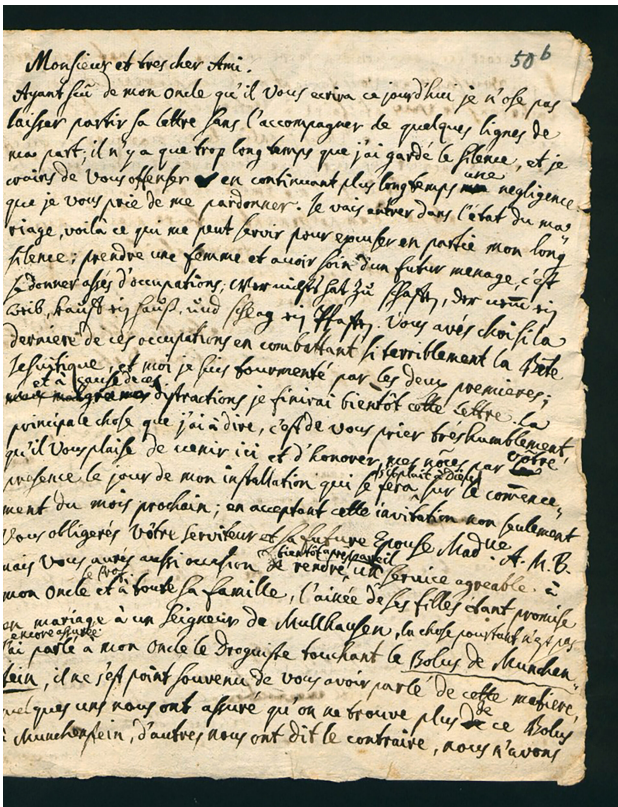 50 b
Monsieur et tres cher Ami.
Ayant sçû de mon Oncle qu'il Vous ecrira ce jourd'hui je n'ose pas
laisser partir sa lettre sans l'accompagner de quelques lignes de
ma part; il n'y a que trop long temps que j'ai gardé le silence, et je
crains de Vous offenser en continuant plus longtemps une negligence
que je vous prie de me pardonner. Je vais entrer dans l'état du ma=
riage, voilà ce qui me peut servir pour excuser en partie mon long
silence; prendre une femme et avoir soin d'un futur menage, c'est
se donner assés d'occupations, Wer nichts hat zu schaffen, der nem ein
Weib, kauff ein hauß, und schlag ein Pfaffen. Vous avés choisi la
derniere de ces occupations en combattant si terriblement la Bête
Jesuitique, et moi je suis tourmenté par les deux premieres;
et à cause de ces distractions je finirai bientôt cette lettre. la
principale chose que j'ai à dire, c'est de vous prier trés humblement
qu'il Vous plaise de venir ici et d'honorer mes nôces par vôtre
presence le jour de mon installation qui se fera s'il plait à Dieu sur le comence=
ment du mois prochain; en acceptant cette invitation non seulement
Vous obligerés Vôtre serviteur et sa future Epouse Mad.ue A. M. B.
mais Vous aurés aussi occasion de rendre bientôt apres pareil service agreable à
mon Oncle et à toute sa famille, l'ainée de ses filles étant promise
en mariage à un Seigneur de Mullhausen, la chose pourtant n'est pas
encore assurée.
J'ai parlé a mon Oncle le Droguiste touchant le Bolus de Munchen=
stein, il ne s'est point souvenu de vous avoir parlé de cette matiere,
quelques uns nous ont assuré qu'on ne trouve plus de ce Bolus
à Munchenstein, d'autres nous ont dit le contraire, nous n'avons